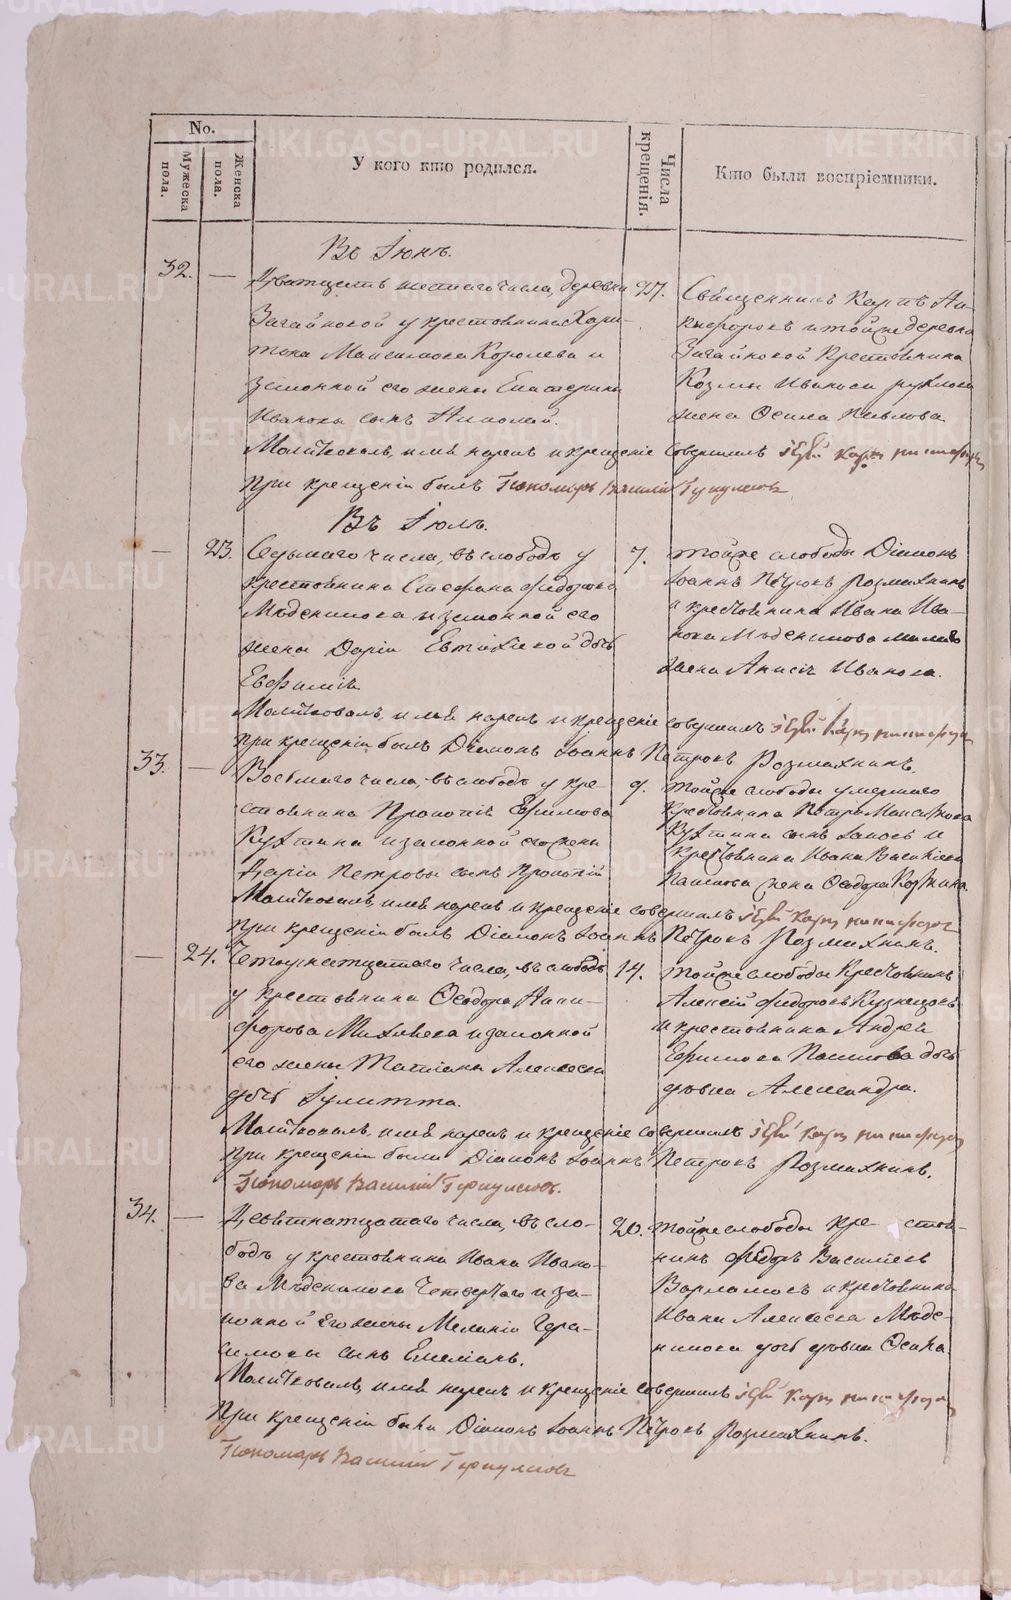 No.
Мужеска пола.
Женска пола.
У кого кто родился.
Числа крещенія.
Кто были воспріемники.
Въ Іюнѣ.
32. — Дватцать шестаго числа, деревни
Загайновой у крестьянина Хари-
тона Максимова Королева и
законной его жены Екатерины
Ивановы сынъ
27. Священникъ Карпъ Ни-
кифоровъ и тойже деревни
Загайновой крестьянина
Козмы Иванова
жена Павлова
Молитвовалъ, имя нарекъ и крещеніе совершилъ Іерей Карпъ Никифоровъ
При крещеніи былъ Пономарь Василій
Въ Іюлѣ.
— 23. Седьмаго числа, въ слободѣ у
крестьянина Стефана Федорова
Мѣденцова и законной его
жены Даріи Евтихіевой дочь
Евфимія
7. тойже слободы Діаконъ
Іоаннъ Петровъ Розмахнинъ
и крестьянина Ивана Ива-
нова
жена Анисія Иванова.
Молитвовалъ, имя нарекъ и крещеніе совершилъ Іерей Карпъ Никифоровъ
При крещеніи былъ Діаконъ Іоаннъ Петровъ Розмахнинъ.
33. — Восьмаго числа, въ слободѣ у кре-
стьянина Прокопія Ефимова
Кухтина и законной его жены
Даріи Петровы сынъ Прокопій
9. тойже слободы умершаго
крестьянина Петра Максимова
Кухтина сынъ и
крестьянина Ивана Василіева
Пашкова жена
Молитвовалъ, имя нарекъ и крещеніе совершилъ Іерей Карпъ Никифоровъ
При крещеніи былъ Діаконъ Іоаннъ Петровъ Розмахнинъ.
— 24. Четырнатцатаго числа, въ слободѣ
у крестьянина Ѳеодора Ники-
форова Михалева и законной
его жены Татіаны Алексеева
дочь Іулитта.
14. тойже слободы Крестьянинъ
Алексій Федоровъ Кузнецовъ
и крестьянина Андрея
Ефимова Пашкова дочь
дѣвка Александра.
Молитвовалъ, имя нарекъ и крещеніе совершилъ Іерей Карпъ Никифоровъ
При крещеніи были Діаконъ Іоаннъ Петровъ Розмахнинъ.
Пономарь Василій
34. — Девятнатцатаго числа, въ сло-
бодѣ у крестьянина Ивана Ивано-
ва Мѣденцова Четвертаго и за-
конной его жены Меланіи Гера-
симовы сынъ Емеліанъ.
20. тойже слободы кре- стья-
нинъ Федоръ Василіевъ
Варламовъ и крестьянина
Ивана Алексеева Мѣде-
нцова дочь дѣвка
Молитвовалъ, имя нарекъ и крещеніе совершилъ Іерей Карпъ Никифоровъ
При крещеніи были Діаконъ Іоаннъ Петровъ Розмахнинъ.
Пономарь Василій
METRIKI.GASO-URAL.RU